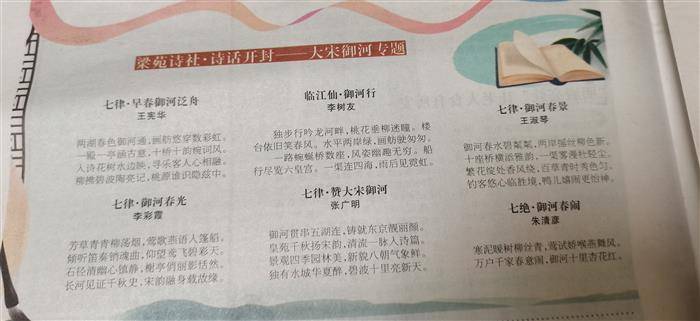 梁苑诗社·诗话开封——大宋御河专题
七律·早春御河泛舟
王宪华
两湖春色御河通,画舫悠穿数彩虹。
一殿一亭涵古意,十桥十韵惋词风。
入诗花树水边映,寻乐客人心相融。
柳拂碧波陶亮记,桃源谁识隐兹中。
七律·御河春光
李彩霞
芳草青青柳荡烟,莺歌燕语入篷船。
倾听笛奏销魂曲,仰望鸢飞碧彩天。
石径清幽心镇静,榭亭俏丽影恬然。
长河见证千秋史,宋韵融身载故缘。
临江仙·御河行
李树友
独步行吟龙河畔,桃花垂柳迷瞳。楼
台依旧笑春风。水平两岸绿,画舫驶匆匆。
一路蜿蜒桥数座,风姿幽趣无穷。船
行尽览六皇宫。一渠连四海,雨后见霓虹。
七律·赞大宋御河
张广明
御河贯串五湖连,铸就东京靓丽颜。
皇苑千秋扬宋韵,清流一脉入诗篇。
景观四季园林美,新貌八朝气象鲜。
独有水城华夏醉,碧波十里亮新天。
七律·御河春景
王淑琴
御河春水碧粼粼,两岸摇丝柳色新。
十座桥横派雅韵,一渠雾漫杜轻尘。
繁花绽处香风绕,百草青时秀色匀。
钓客悠心临胜境,鸭儿嬉闹更怡神。
七绝·御河春闹
朱清彦
寒泥暖树柳丝青,莺试娇喉燕舞风。
万户千家春意闹,御河十里杏花红。